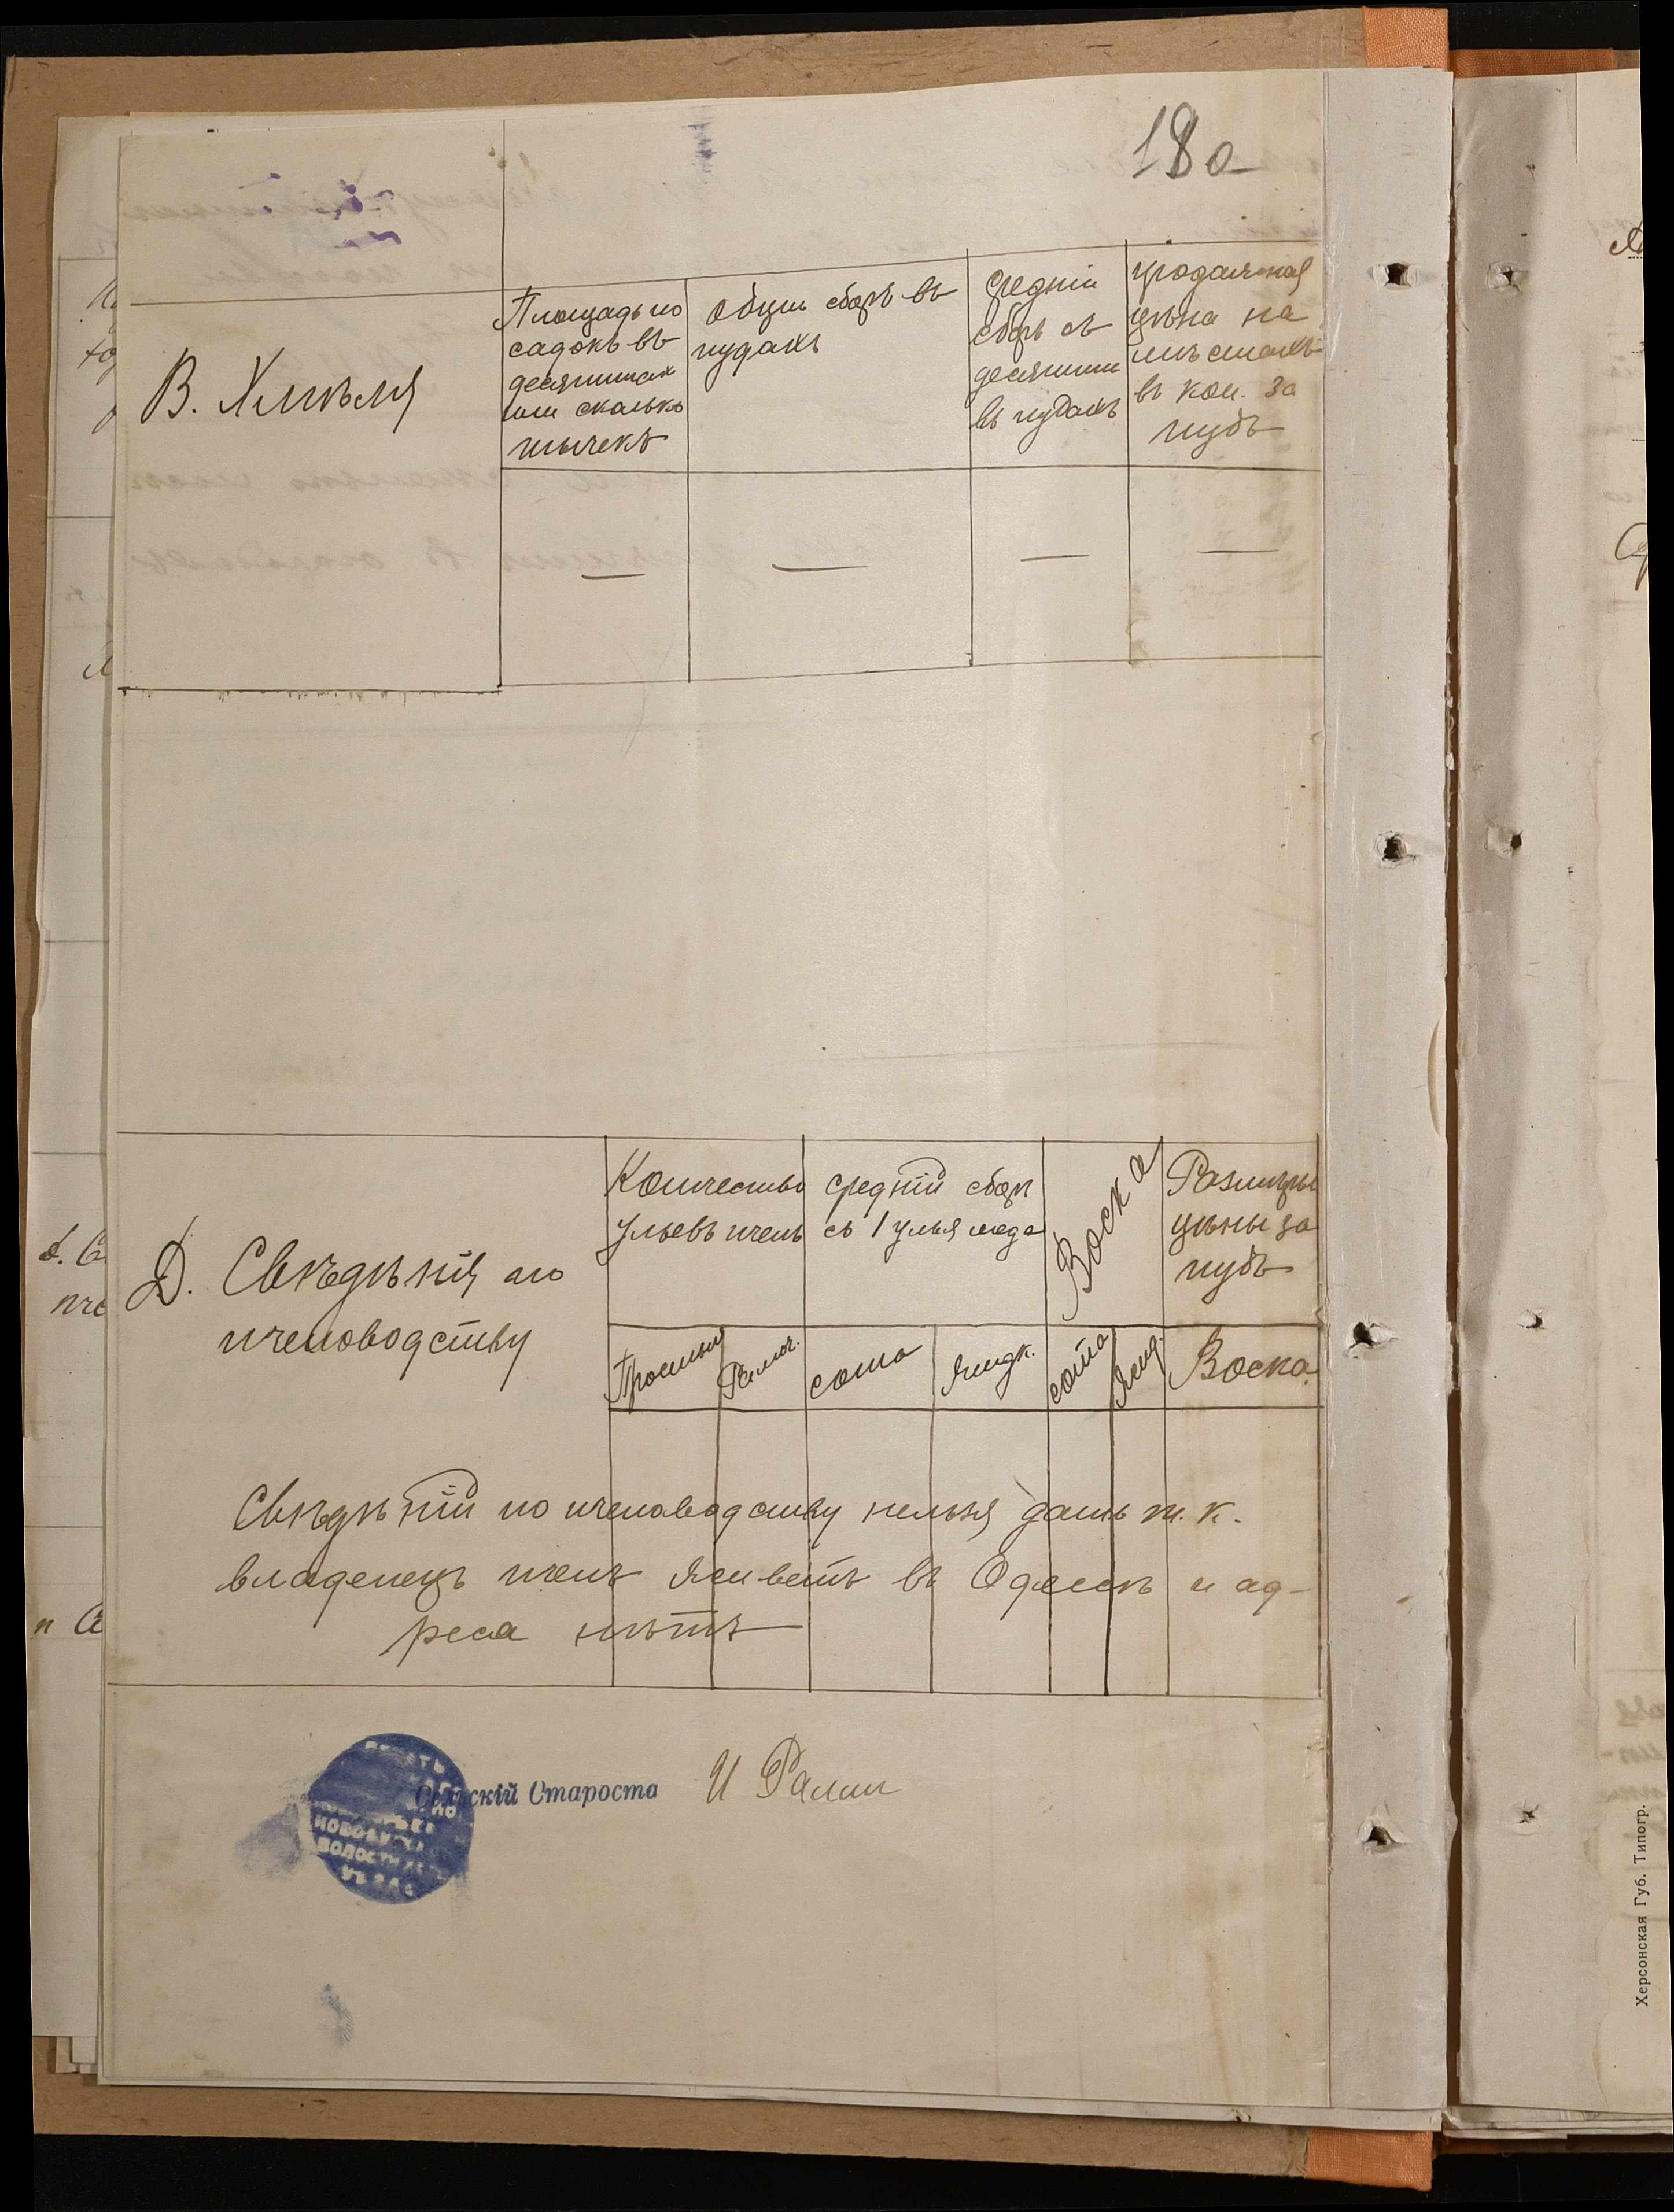 180
В. Хмѣля
Площадь по
садокъ въ
десятинах
или сколько
тычекъ
Общи сборъ въ
пудахъ
Средній
сборъ съ
десятини
въ пудахъ
продажная
цѣна на
мѣстахъ
въ коп. за
пудъ
— — — —
Д. Свѣдѣнія по
пчеловодству
Количество
ульевъ пчелъ
Средній сборъ
съ 1 улья меда
Воска
Размѣры
цѣны за
пудъ
Рамоч.
сота
жидк.
сота
жид.
Воска
Свѣдѣній по пчеловодству нельзя дать т. к.
владелецъ пчелъ живетъ въ Одессѣ и ад-
реса нѣтъ
Сельскій Староста
И
ВОЛОСТИ
Херсонская Губ. Типогр.